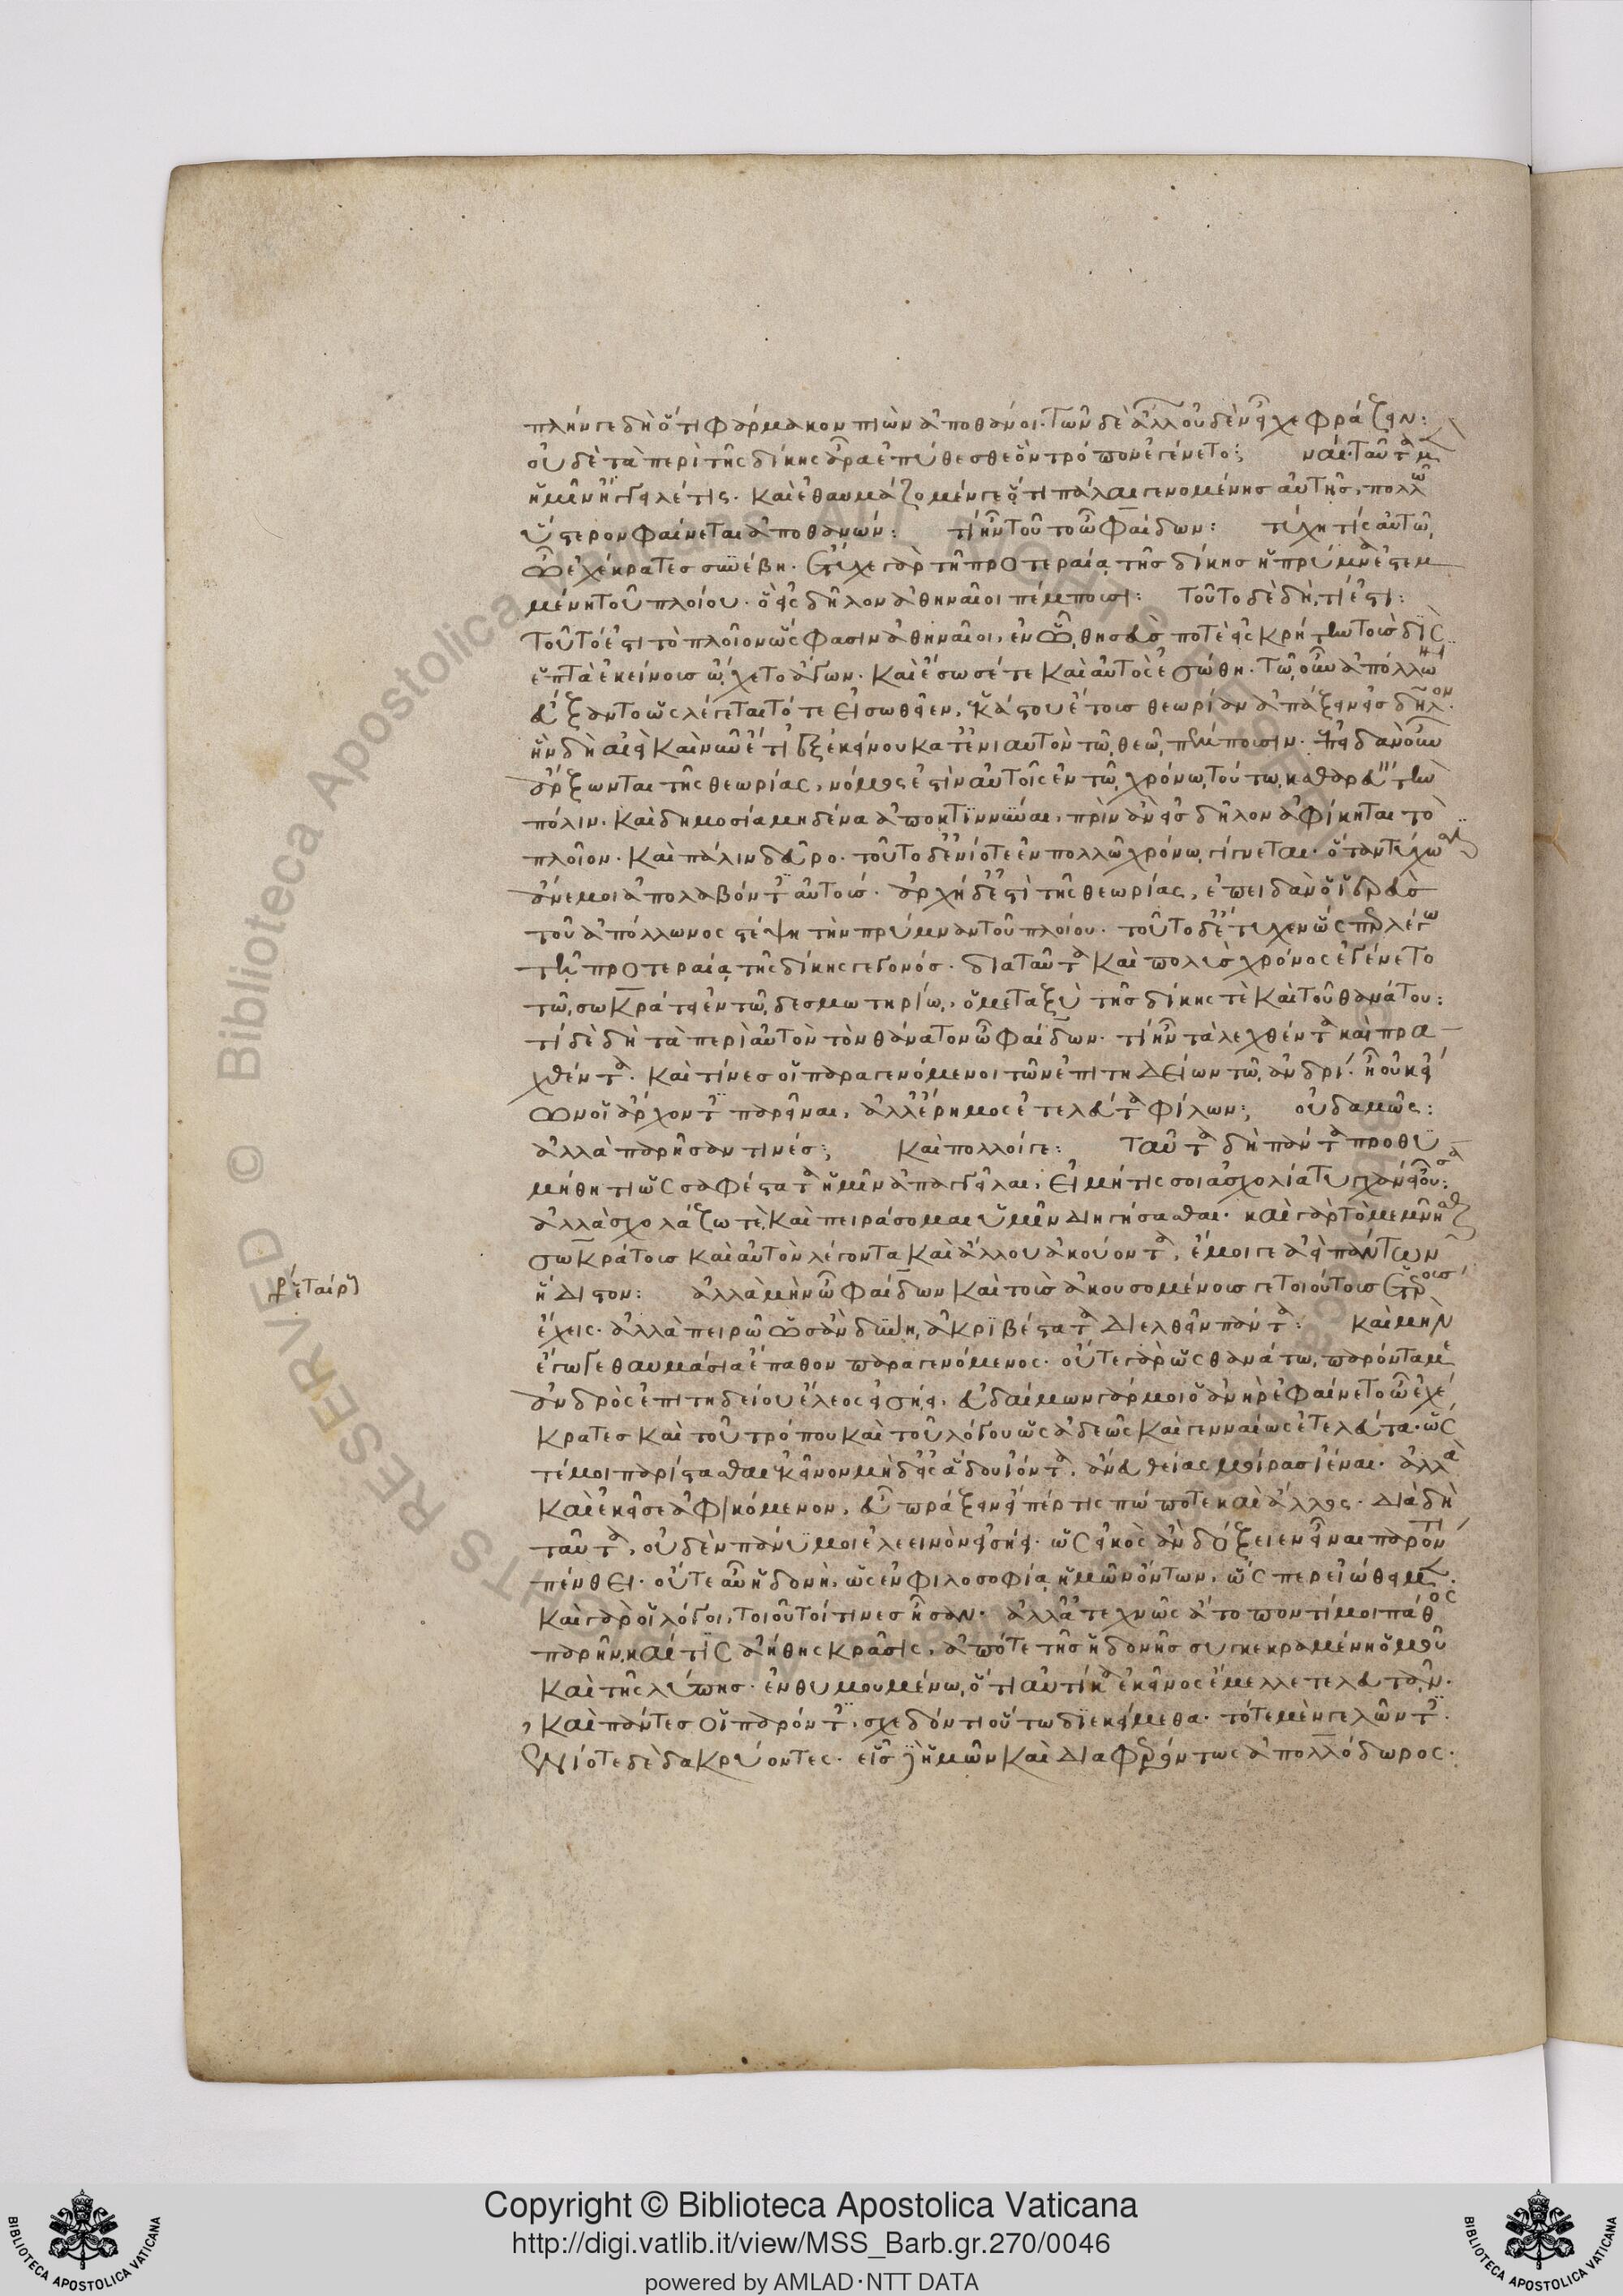 πλήν γε δὴ ὅτι φάρμακον πιὼν ἀποθάνοι. τῶν δὲ ἄλλ οὐδὲν εἶχε φράζειν:
οὐδὲ τὰ περὶ τῆς δίκης ἆρα ἐπύθεσθε ὃν τρόπον ἐγένετο: ναί. ταῦτα μὲν
ἡμῖν ἤγγειλέ τις. καὶ ἐθαυμάζομέν γε ὅτι πάλαι γενομένης αὐτῆς, πολλῶ
ὕστερον φαίνεται ἀποθανών: τί ἦν τοῦτο ὦ φαίδων: τύχη τίς αὐτῶ,
ὦ ἐχέκρατες συνέβη. ἔτυχε γὰρ τῆ προτεραία τῆς δίκης ἡ πρύμνα ἐστεμ
μένη τοῦ πλοίου. ὃ εἰς δῆλον ἀθηναῖοι πέμπουσι: τοῦτο δὲ δὴ, τί ἐστι:
τοῦτό ἐστι τὸ πλοῖον ὥς φασιν ἀθηναῖοι, ἐν ὧ, θησεὺς ποτὲ εἰς κρήτην τοὺς δὶς
ἑπτὰ ἐκείνους ὤχετο ἄγων. καὶ ἔσωσέ τε καὶ αὐτὸς ἐσώθη. τῶ οὖν ἀπόλλωνι
εὔξαντο ὡς λέγεται τότε εἰ σωθεῖεν, ἑκάστου ἔτους θεωρίαν ἀπάξειν εἰς δῆλον.
ἣν δὴ αἰεὶ καὶ νῦν ἔτι ἐξ ἐκείνου κατ ἐνιαυτὸν τῶ θεῶ πέμπουσιν. ἐπειδὰν οὖν
ἄρξωνται τῆς θεωρίας, νόμος ἐστὶν αὐτοῖς ἐν τῶ χρόνω τούτω καθαρεύειν τὴν
πόλιν. καὶ δημοσία μηδένα ἀποκτιννύναι, πρὶν ἂν εἰς δῆλον ἀφίκηται τὸ
πλοῖον. καὶ πάλιν δεῦρο. τοῦτο δ ἐνίοτε ἐν πολλῶ χρόνω γίγνεται. ὅταν τύχωσιν
ἄνεμοι ἀπολαβόντες αὐτούς. ἀρχὴ δ ἐστὶ τῆς θεωρίας, ἐπειδὰν ὁ ἱερεὺς
τοῦ ἀπόλλωνος στέψη τὴν πρύμναν τοῦ πλοίου. τοῦτο δ ἔτυχεν ὥσπερ λέγω
τῆ προτεραία τῆς δίκης γεγονός. διὰ ταῦτα καὶ πολὺς χρόνος ἐγένετο
τῶ σωκράτει ἐν τῶ δεσμωτηρίω, ὁ μεταξὺ τῆς δίκης τὲ καὶ τοῦ θανάτου:
τί δὲ δὴ τὰ περὶ αὐτὸν τὸν θάνατον ὦ φαίδων. τί ἦν τὰ λεχθέντα καὶ πρα
χθέντα. καὶ τίνες οἱ παραγενόμενοι τῶν ἐπιτηδείων τῶ ἀνδρί. ἢ οὐκ εἴ
ων οἱ ἄρχοντες παρεῖναι, ἀλλ ἔρημος ἐτελεύτα φίλων: οὐδαμῶς:
ἀλλὰ παρῆσαν τινές: καὶ πολλοί γε: ταῦτα δὴ πάντα προθυ
μήθητι ὡς σαφέστατα ἡμῖν ἀπαγγεῖλαι, εἰ μή τις σοι ἀσχολία τυγχάνει οὖσα:
ἀλλὰ σχολάζω τὲ, καὶ πειράσομαι ὑμῖν διηγήσασθαι. καὶ γὰρ τὸ μεμνῆσθαι
σωκράτους καὶ αὐτὸν λέγοντα καὶ ἄλλου ἀκούοντα, ἔμοιγε ἀεὶ πάντων
ἥδιστον: ἀλλὰ μὴν ὦ φαίδων καὶ τοὺς ἀκουσομένους γε τοιούτους ἑτέρους
ἔχεις. ἀλλὰ πειρῶ ὡς ἂν δύνη, ἀκριβέστατα διελθεῖν πάντα: καὶ μὴν
ἔγωγε θαυμάσια ἔπαθον παραγενόμενος. οὔτε γὰρ ὡς θανάτω παρόντα με
ἀνδρὸς ἐπιτηδείου ἔλεος εἰσήει, εὐδαίμων γάρ μοι ὁ ἀνὴρ ἐφαίνετο ὦ ἐχέ
κρατες καὶ τοῦ τρόπου καὶ τοῦ λόγου ὡς ἀδεῶς καὶ γενναίως ἐτελεύτα. ὥς
τέ μοι παρίστασθαι ἐκεῖνον μὴδ εἰς ἅδου ἰόντα, ἄνευ θείας μοίρας ἰέναι. ἀλλὰ
καὶ ἐκεῖσε ἀφικόμενον, εὖ πράξειν εἴπέρ τις πώποτε καὶ ἄλλος. διὰ δὴ
ταῦτα, οὐδὲν πάνυ μοι ἐλεεινὸν εἰσήει. ὡς εἰκὸς ἂν δόξειεν εἶναι παρόντι
πένθει. οὔτε αὖ ἡδονὴ, ὡς ἐν φιλοσοφία ἡμῶν ὄντων, ὥς περ εἰώθειμεν.
καὶ γὰρ οἱ λόγοι, τοιοῦτοί τινες ἦσαν. ἀλλ ἀτεχνῶς ἄτοπον τί μοι πάθος
παρῆν. καί τις ἀήθης κρᾶσις, ἀπό τε τῆς ἡδονῆς συγκεκραμένη ὁμοῦ
καὶ τῆς λύπης. ἐνθυμουμένω, ὅτι αὐτίκα ἐκεῖνος ἔμελλε τελευτᾶν.
καὶ πάντες οἱ παρόντες, σχεδόν τι οὕτω διεκείμεθα. τότε μὲν γελῶντες.
ἐνίοτε δὲ δακρύοντες. εἷς δὲ ἡμῶν καὶ διαφερόντως ἀπολλόδωρος.
ἑταίρους
Copyright © Biblioteca Apostolica Vaticana
http://digi.vatlib.it/view/MSS_Barb.gr.270/0046
powered by AMLAD·NTT DATA
BIBLIOTECA APOSTOLICA VATICANA
BIBLIOTECA APOSTOLICA VATICANA
© Biblioteca Apostolica Vaticana